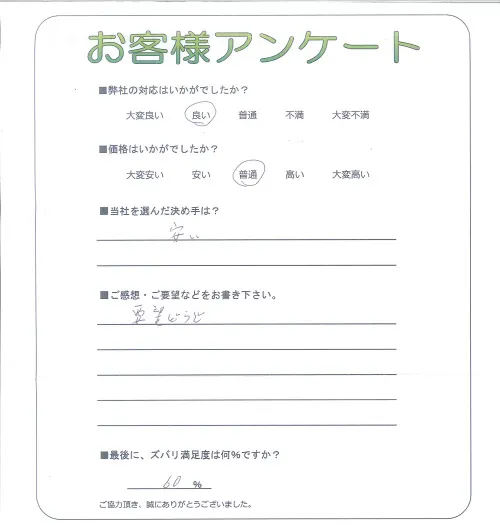 お客様アンケート
■弊社の対応はいかがでしたか？
大変良い 良い 普通 不満 大変不満
■価格はいかがでしたか？
大変安い 安い 普通 高い 大変高い
■当社を選んだ決め手は？
安い
■ご感想・ご要望などをお書き下さい。
要望どうり
■最後に、ズバリ満足度は何％ですか？
60 ％
ご協力頂き、誠にありがとうございました。